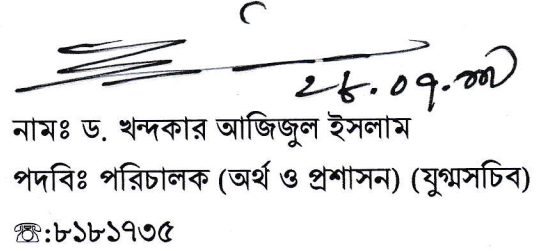 নামঃ ড. খন্দকার আজিজুল ইসলাম
পদবিঃ পরিচালক (অর্থ ও প্রশাসন) (যুগ্মসচিব)
☎:৮১৮১৭৩৫